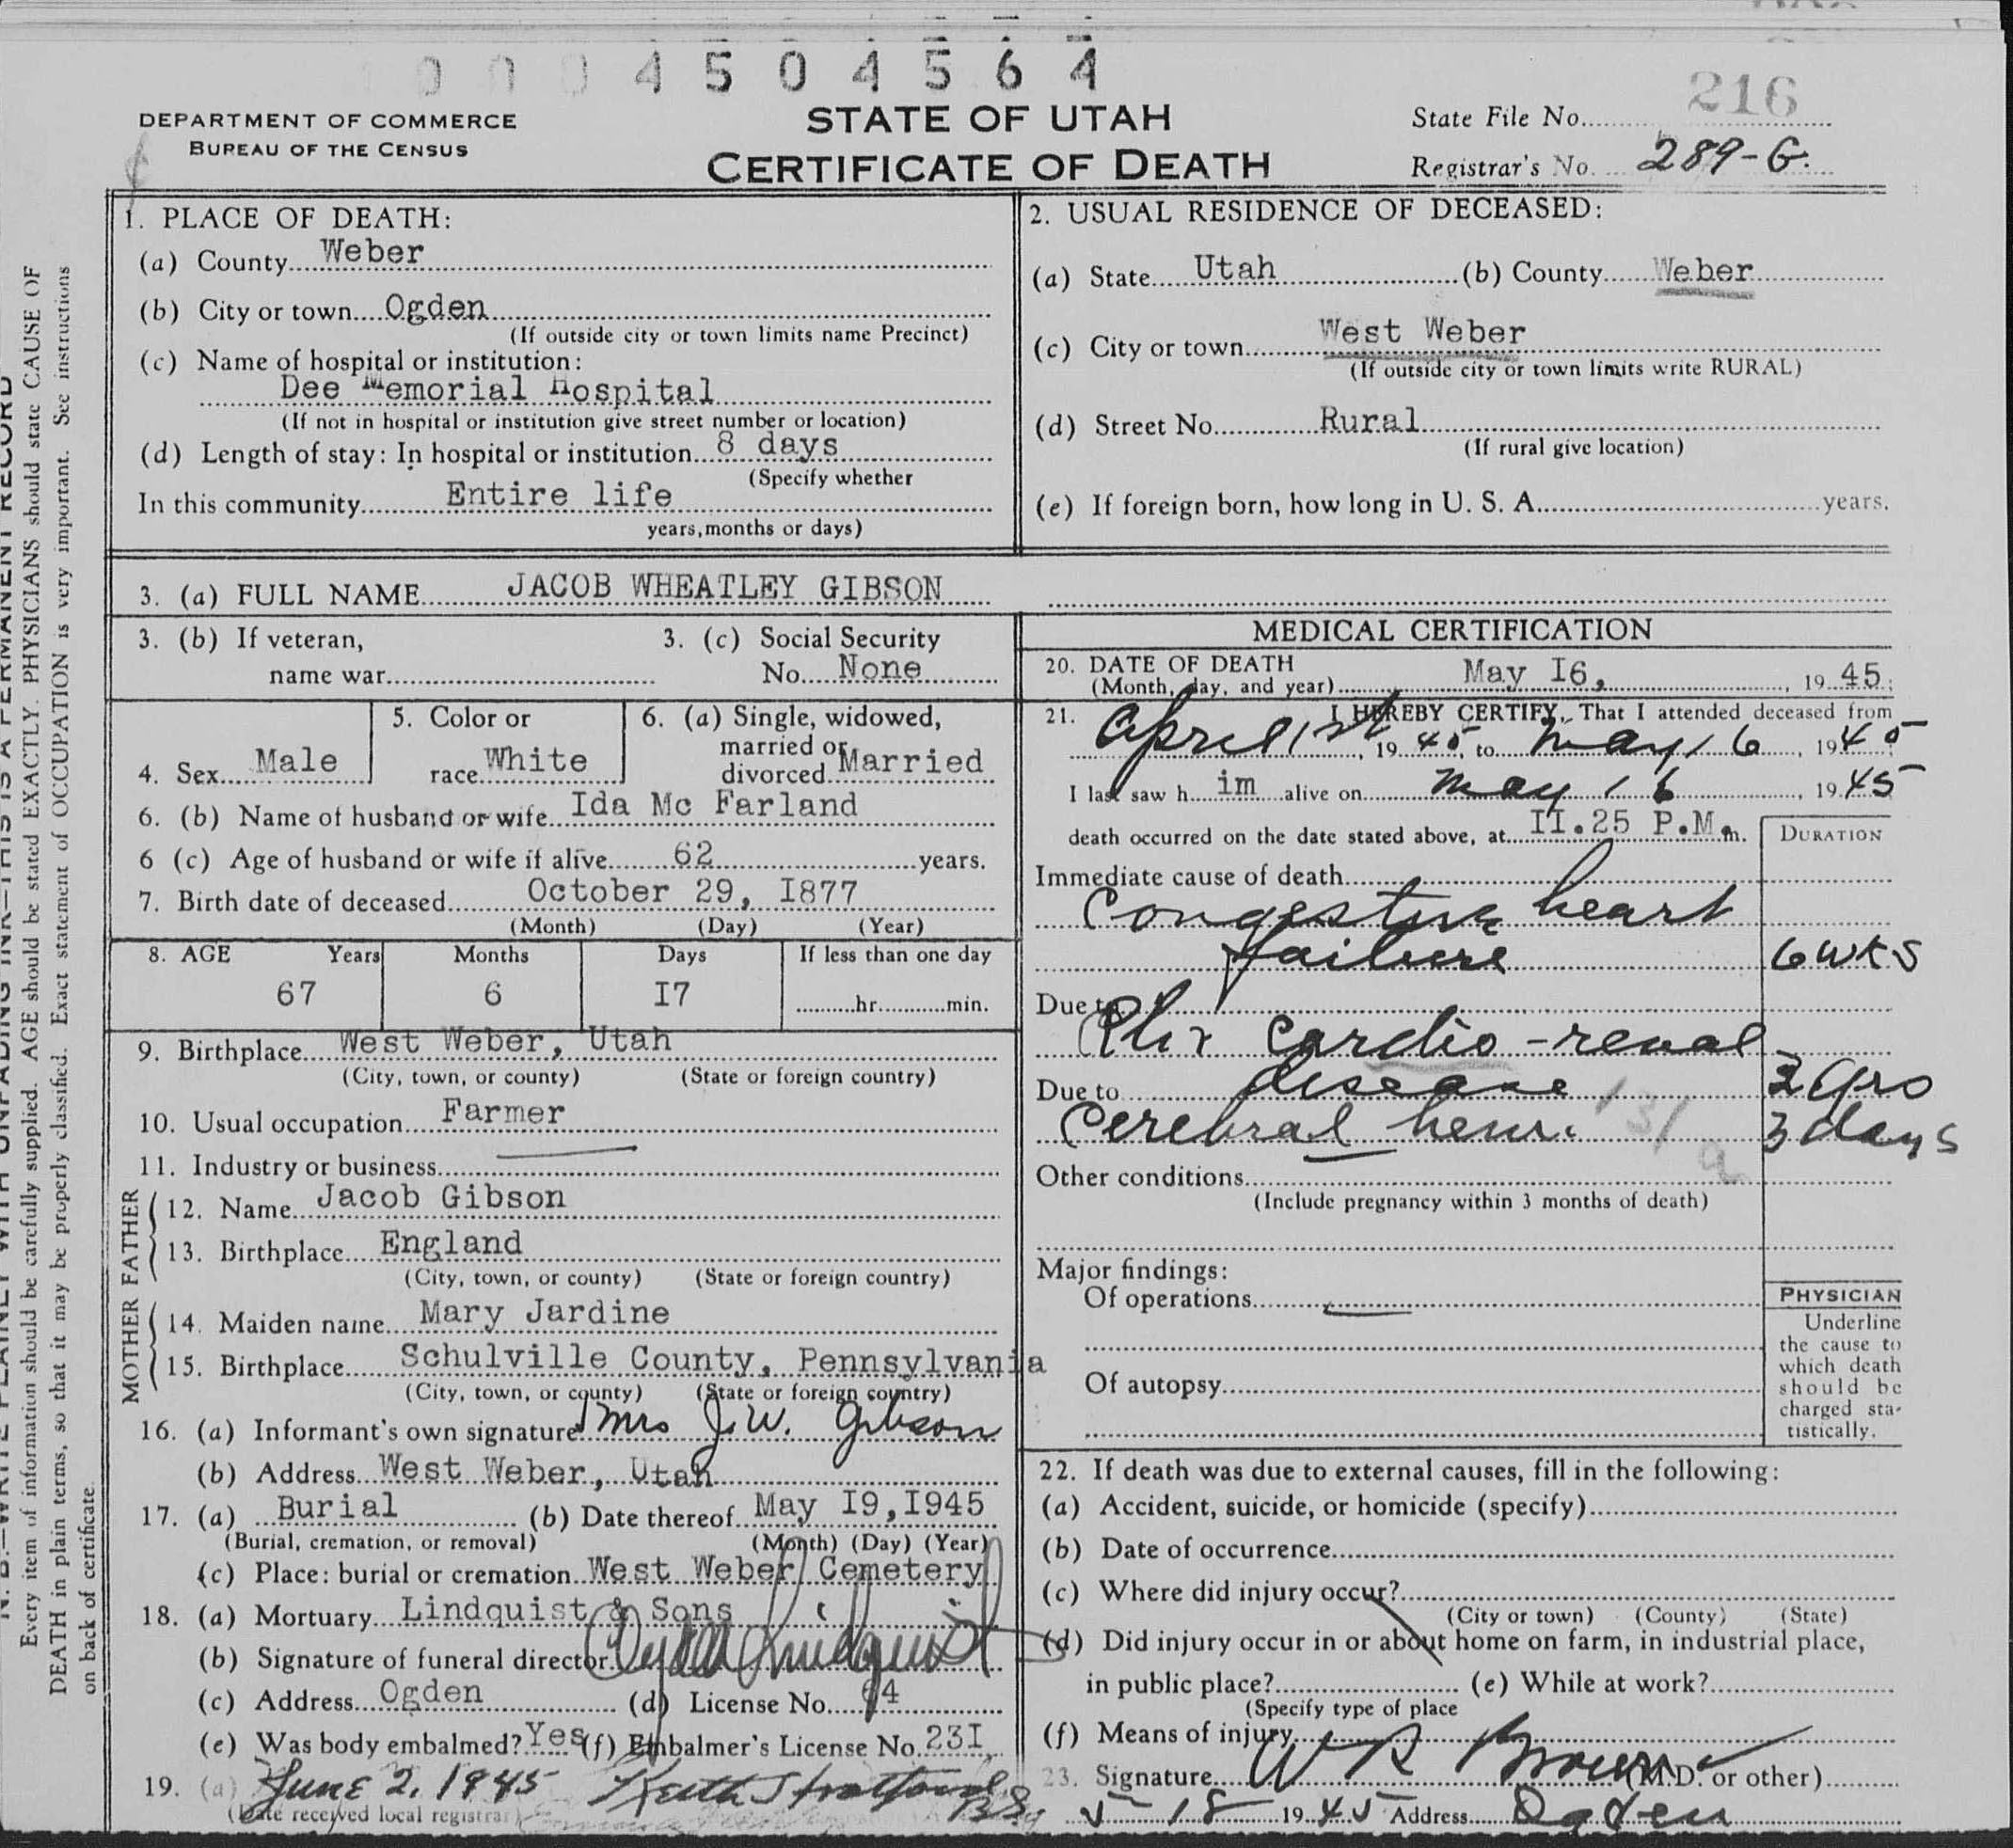 0004504564
DEPARTMENT OF COMMERCE
BUREAU OF THE CENSUS
STATE OF UTAH
CERTIFICATE OF DEATH
State File No. 216
Registrar's No. 289-G.
1. PLACE OF DEATH:
(a) County Weber
(b) City or town Ogden
(If outside city or town limits name Precinct)
(c) Name of hospital or institution:
Dee Memorial Hospital
(If not in hospital or institution give street number or location)
(d) Length of stay: In hospital or institution 8 days
(Specify whether
In this community Entire life
years, months or days)
2. USUAL RESIDENCE OF DECEASED:
(a) State Utah (b) County Weber
(c) City or town West Weber
(If outside city or town limits write RURAL)
(d) Street No. Rural
(If rural give location)
(e) If foreign born, how long in U. S. A. years.
3. (a) FULL NAME JACOB WHEATLEY GIBSON
3. (b) If veteran,
name war
3. (c) Social Security
No. None
4. Sex Male
5. Color or
race White
6. (a) Single, widowed,
married or
divorced Married
6. (b) Name of husband or wife Ida Mc Farland
6 (c) Age of husband or wife if alive 62 years.
7. Birth date of deceased October 29, I877
(Month) (Day) (Year)
8. AGE Years Months Days If less than one day
67 6 I7 hr. min.
9. Birthplace West Weber, Utah
(City, town, or county) (State or foreign country)
10. Usual occupation Farmer
11. Industry or business
FATHER
12. Name Jacob Gibson
13. Birthplace England
(City, town, or county) (State or foreign country)
MOTHER
14. Maiden name Mary Jardine
15. Birthplace Schulville County, Pennsylvania
(City, town, or county) (State or foreign country)
16. (a) Informant's own signature Mrs J.W. Gibson
(b) Address West Weber, Utah
17. (a) Burial (b) Date thereof May I9,I945
(Burial, cremation, or removal) (Month) (Day) (Year)
(c) Place: burial or cremation West Weber Cemetery
18. (a) Mortuary Lindquist & Sons
(b) Signature of funeral director Lindquist
(c) Address Ogden (d) License No. 64
(e) Was body embalmed? Yes (f) Embalmer's License No. 23I
19. (a) June 2, 1945 Keith
(Date received local registrar)
MEDICAL CERTIFICATION
20. DATE OF DEATH
(Month, day, and year) May I6, 1945
21. I HEREBY CERTIFY, That I attended deceased from
April 1st, 1945 to May 16, 1945
I last saw him alive on May 16, 1945
death occurred on the date stated above, at II.25 P.M. m.
DURATION
Immediate cause of death
Congestive heart
failure 6 wks
Due to
Chr cardio-renal
Due to disease 2 yrs
Cerebral hem. 131 a 3 days
Other conditions
(Include pregnancy within 3 months of death)
Major findings:
Of operations
Of autopsy
PHYSICIAN
Underline
the cause to
which death
should be
charged sta-
tistically.
22. If death was due to external causes, fill in the following:
(a) Accident, suicide, or homicide (specify)
(b) Date of occurrence
(c) Where did injury occur?
(City or town) (County) (State)
(d) Did injury occur in or about home on farm, in industrial place,
in public place? (e) While at work?
(Specify type of place
(f) Means of injury
23. Signature W R Brown (M.D. or other)
5-18 1945 Address Ogden
N. B.—WRITE PLAINLY WITH UNFADING INK—THIS IS A PERMANENT RECORD
Every item of information should be carefully supplied. AGE should be stated EXACTLY. PHYSICIANS should state CAUSE OF
DEATH in plain terms, so that it may be properly classified. Exact statement of OCCUPATION is very important. See instructions
on back of certificate.